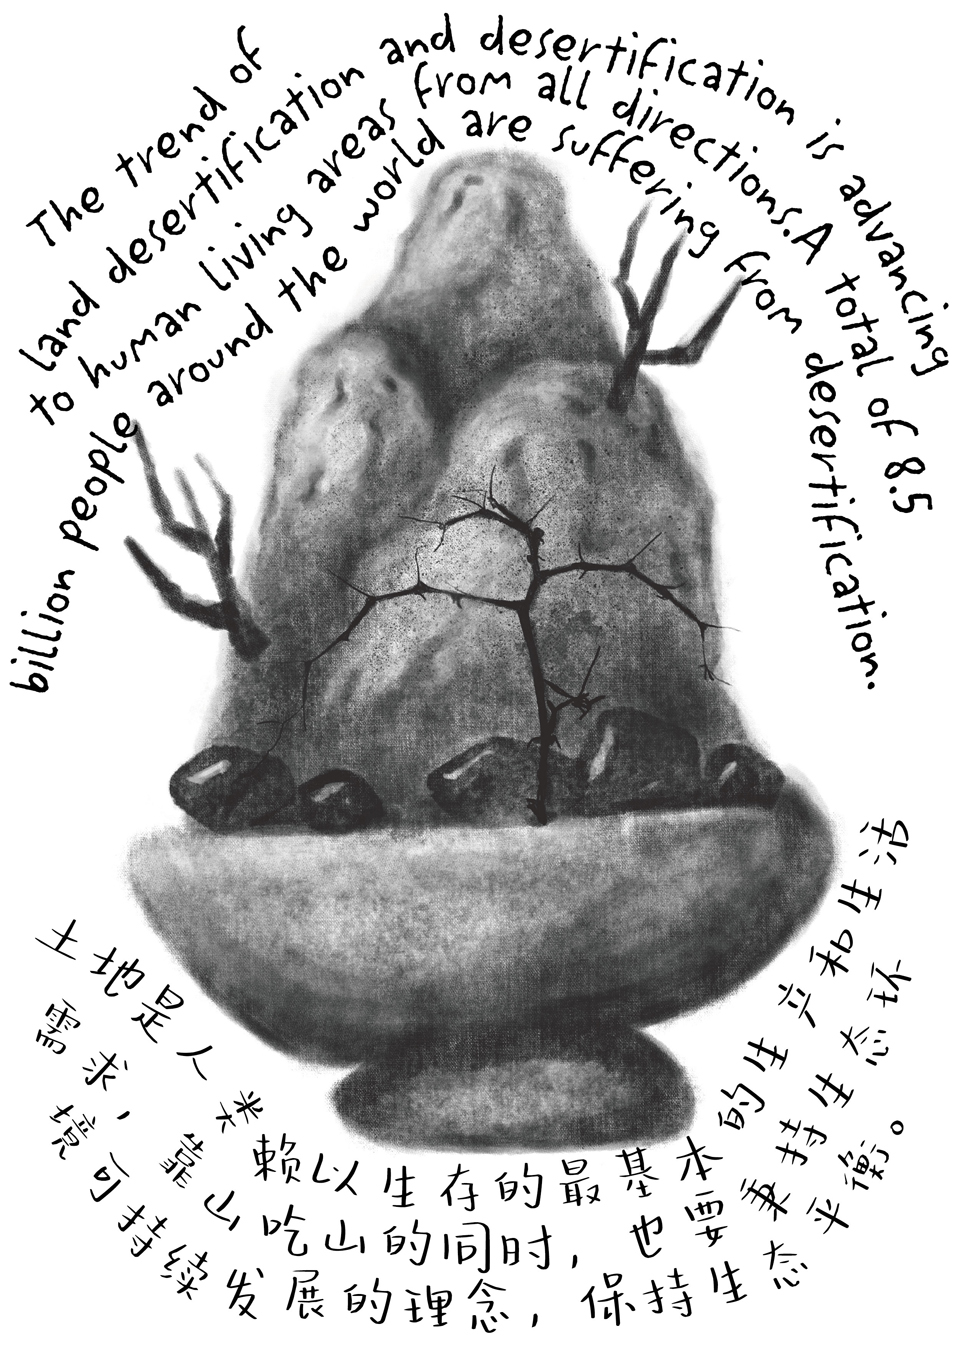 The trend of
land desertification and desertification is advancing
to human living areas from all directions.A total of 8.5
billion people around the world are suffering from desertification.
土地是人类赖以生存的最基本的生产和生活
需求，靠山吃山的同时，也要秉持生态环
境可持续发展的理念，保持生态平衡。